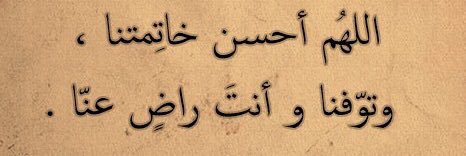 اللهُم أحسن خاتِمتنا ،
وتوّفنا و أنتَ راضٍ عنّا .